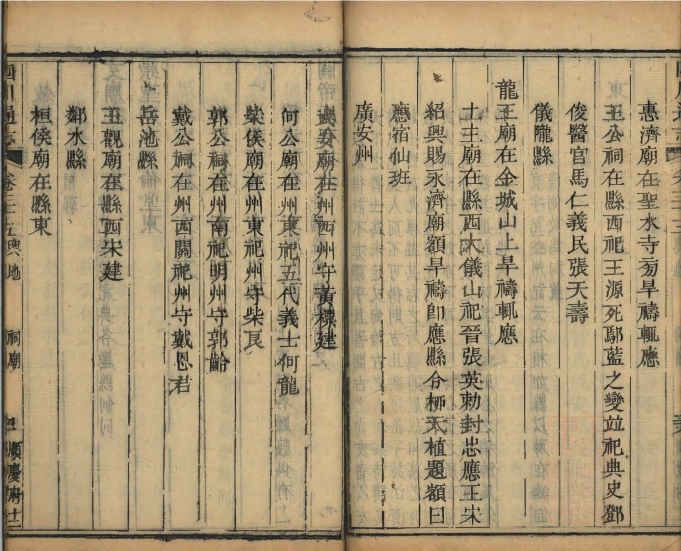 惠濟廟在聖水寺旁旱禱輒應
王公祠在縣西祀王源死鄢藍之變並祀典史鄧
俊醫官馬仁義民張天壽
儀隴縣
龍王廟在金城山上旱禱輒應
土主廟在縣西大儀山祀晉張英勅封忠應王宋
紹興賜永濟廟額旱禱即應縣令柳天植題額曰
應宿仙班
廣安州
安廟在州西州守黃標建
何公廟在州東祀五代義士何龍
柴侯廟在州東祀州守柴良
郭公祠在州南祀明州守郭齡
戴公祠在州西關祀州守戴恩君
岳池縣
王觀廟在縣西宋建
鄰水縣
桓侯廟在縣東
四川通志 卷二十五 輿地 祠廟 順慶府 十一